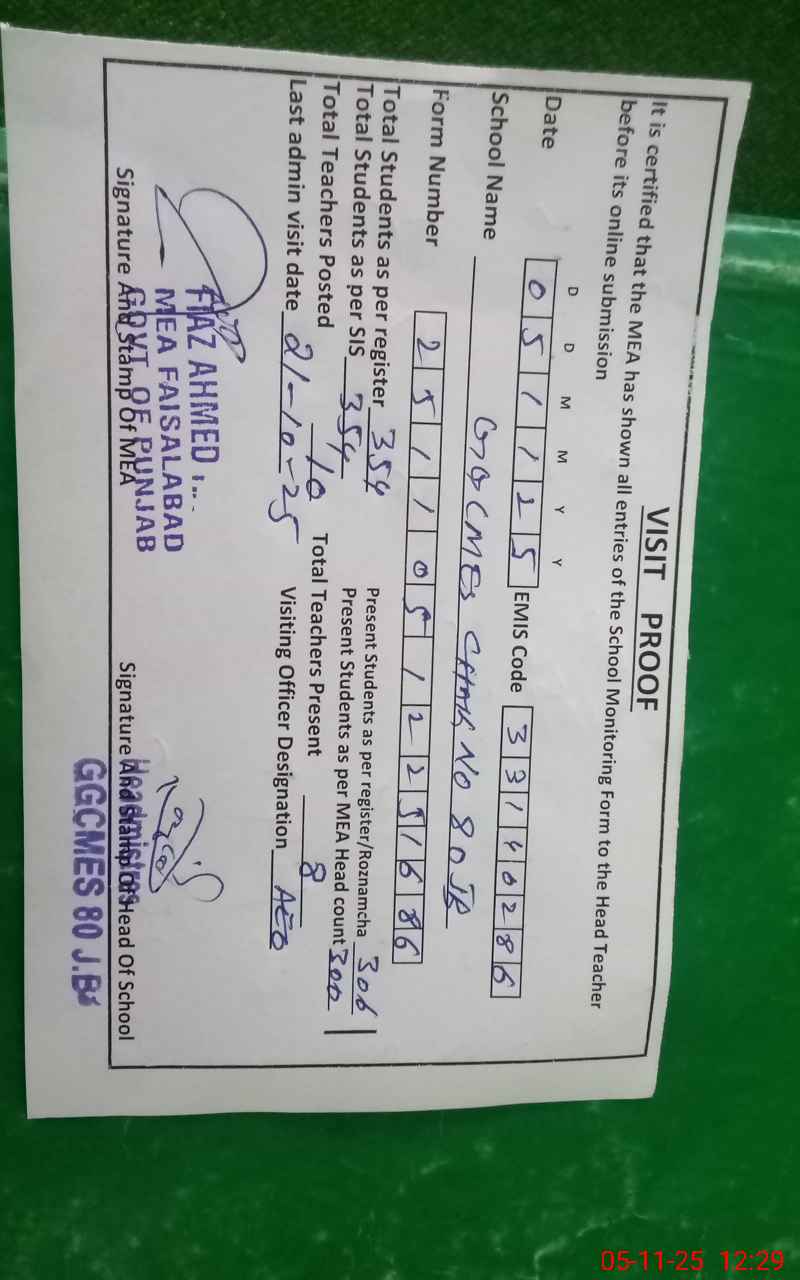 VISIT PROOF
It is certified that the MEA has shown all entries of the School Monitoring Form to the Head Teacher
before its online submission
D D M M Y Y
Date 0 5 1 1 2 5 EMIS Code 3 3 1 4 0 2 8 6
School Name GGCMES CHAK NO 80 JB
Form Number 2 5 1 1 0 5 1 2 2 5 1 6 8 6
Total Students as per register 354 Present Students as per register/Roznamcha 306
Total Students as per SIS 354 Present Students as per MEA Head count 300
Total Teachers Posted 10 Total Teachers Present 8
Last admin visit date 21-10-25 Visiting Officer Designation AEO
AHMED
MEA FAISALABAD
GOVT. OF PUNJAB
Signature And Stamp Of MEA
Headmistress
Signature And Stamp Of Head Of School
GGCMES 80 J.B
05-11-25 12:29